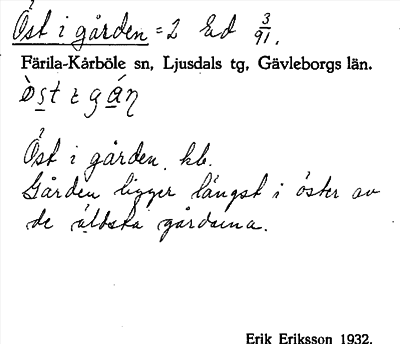 Öst i gården = 2 Ed 3/91.
Färila-Kårböle sn, Ljusdals tg, Gävleborgs län.
Öst i gården. kb.
Gården ligger längst i öster av
de äldsta gårdarna.
Erik Eriksson 1932.